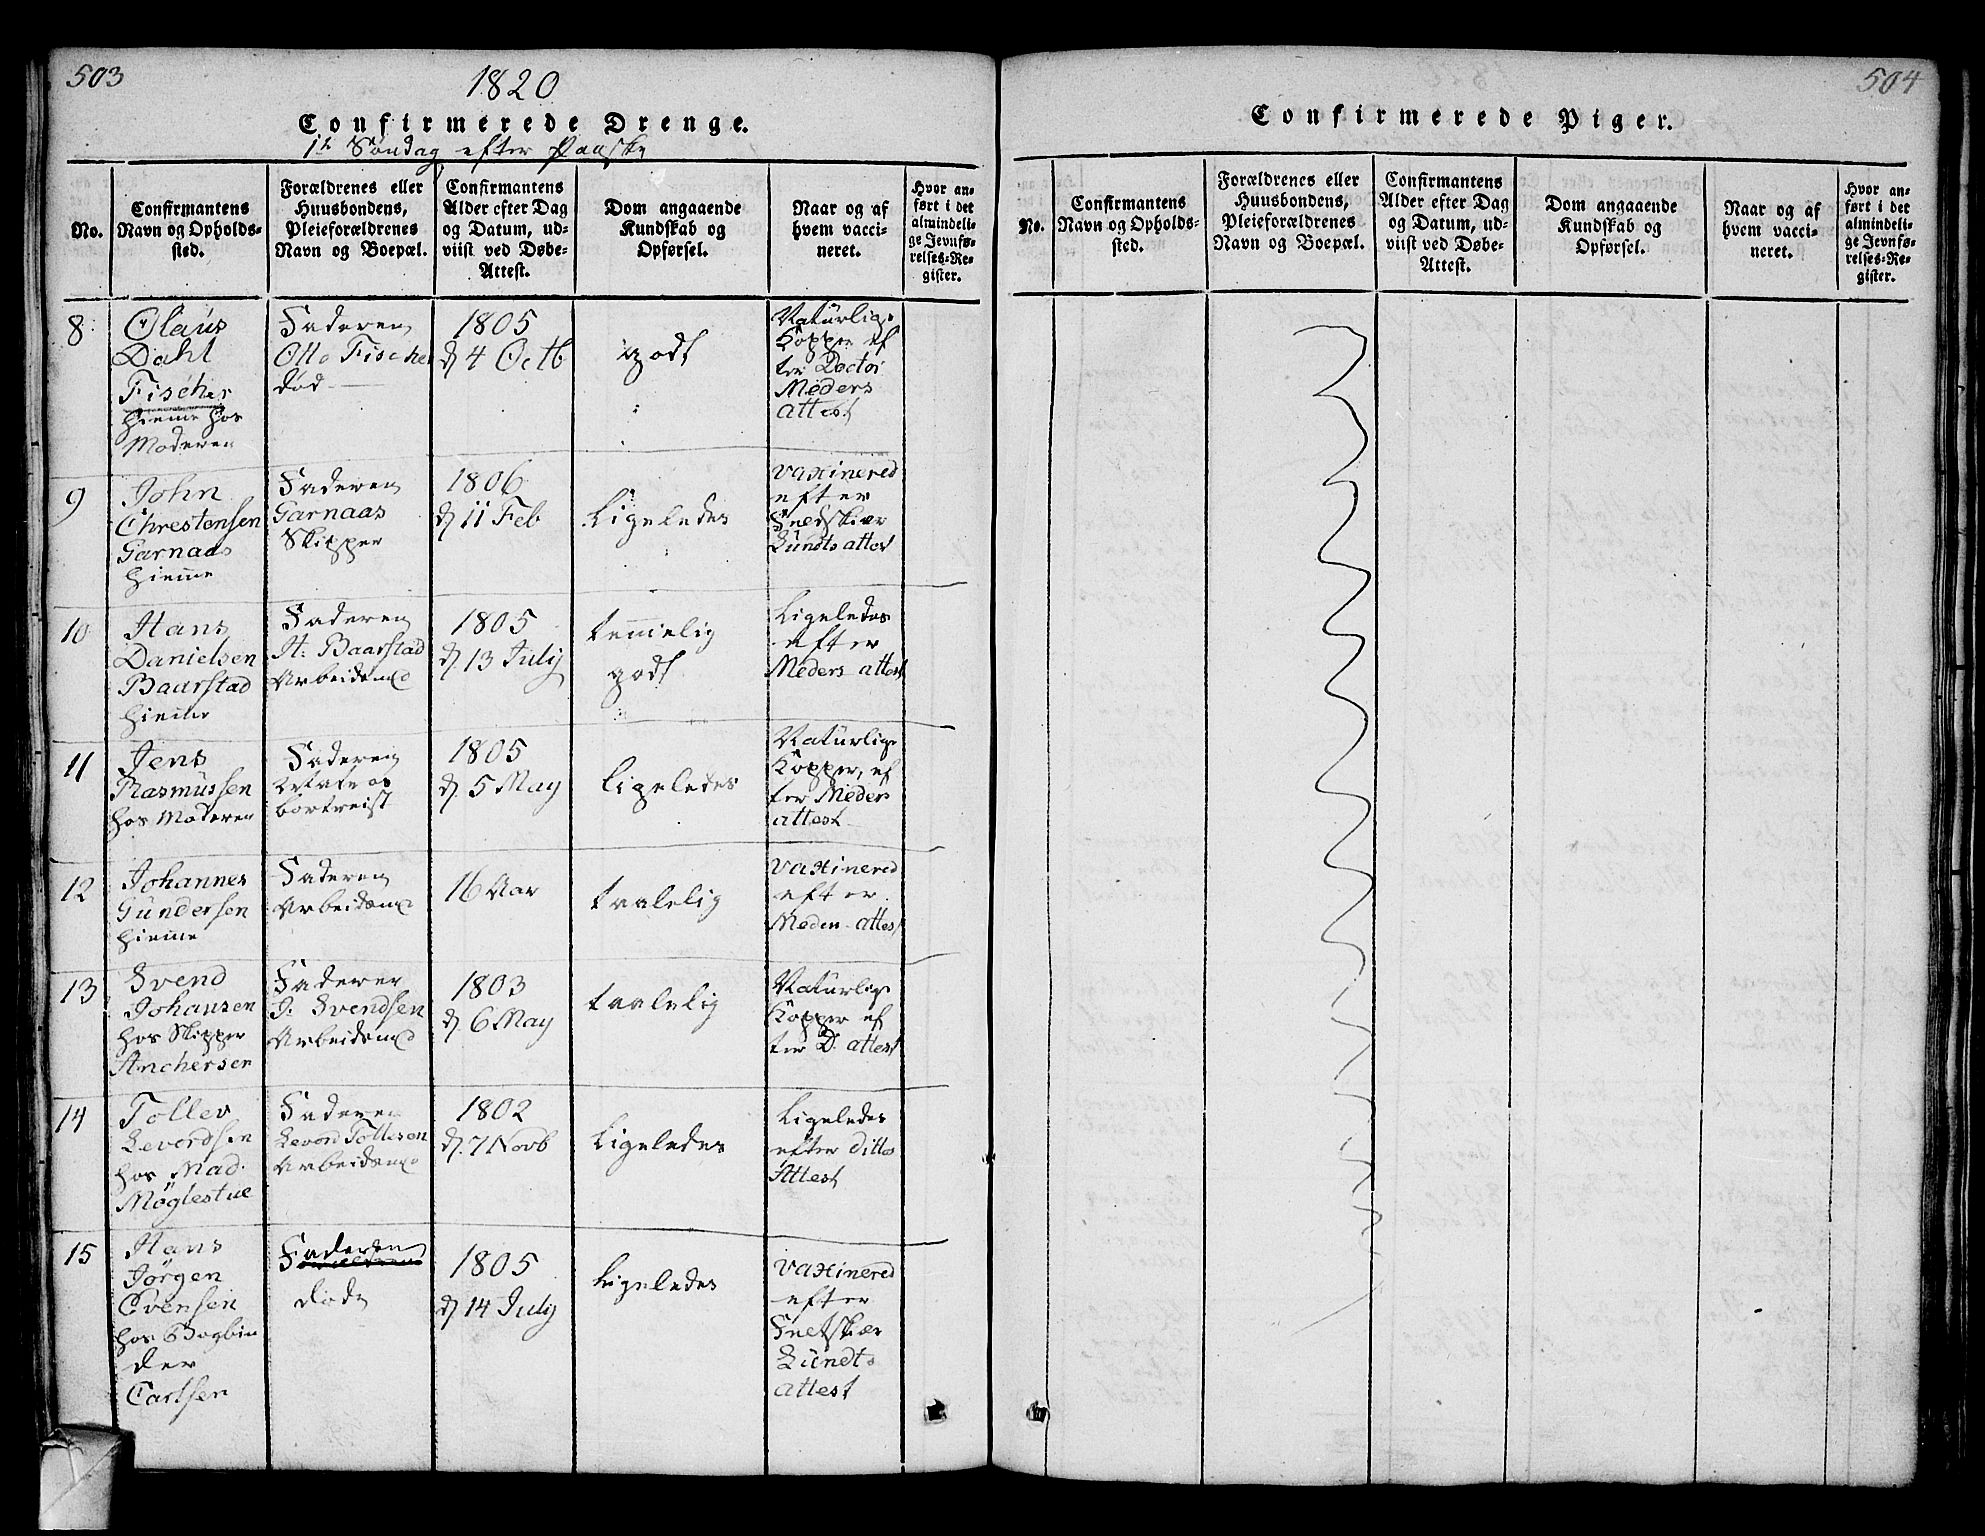 503
1820
Confirmerede Drenge.
1te Søndag efter Paaske
No.
Confirmantens
Navn og Opholds-
sted.
Forældrenes eller
Huusbondens,
Pleieforældrenes
Navn og Boepæl.
Confirmantens
Alder efter Dag
og Datum, ud-
viist ved Døbe-
Attest.
Dom angaaende
Kundskab og
Opførsel.
Naar og af
hvem vacci-
neret.
Hvor an-
ført i det
almindeli-
ge Jevnfø-
relses-Re-
gister.
8
Olaus
Dahl
Fischer
hieme hos
Moderen
Faderen
Otto Fischer
død
1805
d 4 Octb
godt
Naturlige
Kopper ef
ter Doctor
Meders
attest
9
John
Chrestensen
Garnaas
hieme
Faderen
Garnaas
Skipper
1806
d 11 Feb
Ligeledes
vaxinered
efter
Lundts attest
10
Hans
Danielsen
Baarstad
hieme
Faderen
H: Baarstad
Arbeidsmd
1805
d. 13 July
temelig
godt
Ligeledes
efter
Meders attest
11
Jens
Rasmussen
hos Moderen
Faderen
bortreist
1805
d. 5 May
ligeledes
Naturlige
Kopper, ef
ter Meders
attest
12
Johannes
Gundersen
hieme
Faderen
Arbeidsmd
16 Aar
taalelig
vaxinered
efter
Meders attest
13
Svend
Johansen
hos Skipper
Anchersen
Faderen
J. Svendsen
Arbeidsmd
1803
d. 6 May
taalelig
Naturlige
Kopper ef
ter D. attest
14
Tollev
Levordsen
hos Mad.
Møglestue
Faderen
Levord Tollesen
Arbeidsmd
1802
d. 7 Novb
Ligeledes
Ligeledes
efter ditto
Attest
15
Hans
Jørgen
Evensen
hos Bogbin
der
Carlsen
Faderen
døde
1805
d 14 July
Ligeledes
vaxinered
efter
Lundts
attest
504
Confirmerede Piger.
No.
Confirmantens
Navn og Opholds-
sted.
Forældrenes eller
Huusbondens,
Pleieforældrenes
Navn og Boepæl.
Confirmantens
Alder efter Dag
og Datum, ud-
viist ved Døbe-
Attest.
Dom angaaende
Kundskab og
Opførsel.
Naar og af
hvem vacci-
neret.
Hvor an-
ført i det
almindeli-
ge Jevnfø-
relses-Re-
gister.